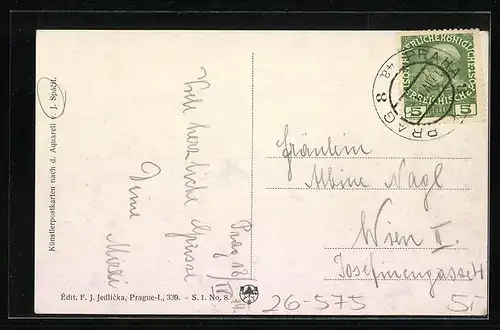 Künstlerpostkarten nach d. Aquarell v. J. Späčil.
Prag 18/IV 11.
Viele herzliche Grüsse
Deine Mizzi
Édit, F. J. Jedlička, Prague-I., 339. - S. 1. No, 8.
PRAG 8 PRAHA 8
5 5
Fräulein
Albine Nagl
Wien II.
Josefinengasse 4
26-575
5.-